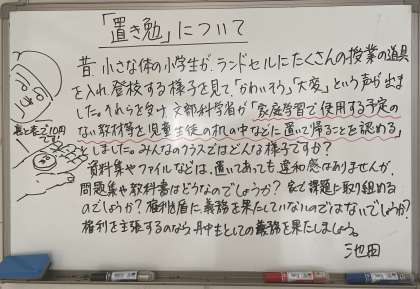 「置き勉」について
昔、小さな体の小学生が、ランドセルにたくさんの授業の道具
を入れ登校する様子を見て、「かわいそう」「大変」という声が出ま
した。それらを受け、文部科学省が「家庭学習で使用する予定の
ない教材等を児童生徒の机の中などに置いて帰ることを認める」
としました。みんなのクラスではどんな様子ですか?
資料集やファイルなどは、置いてあっても違和感はありませんが、
問題集や教科書はどうなのでしょうか?家で課題に取り組める
のでしょうか?権利を盾に、義務を果たしていないのではないでしょうか?
権利を主張するのなら、中生としての義務を果たしましょう。
池田
10円
です。